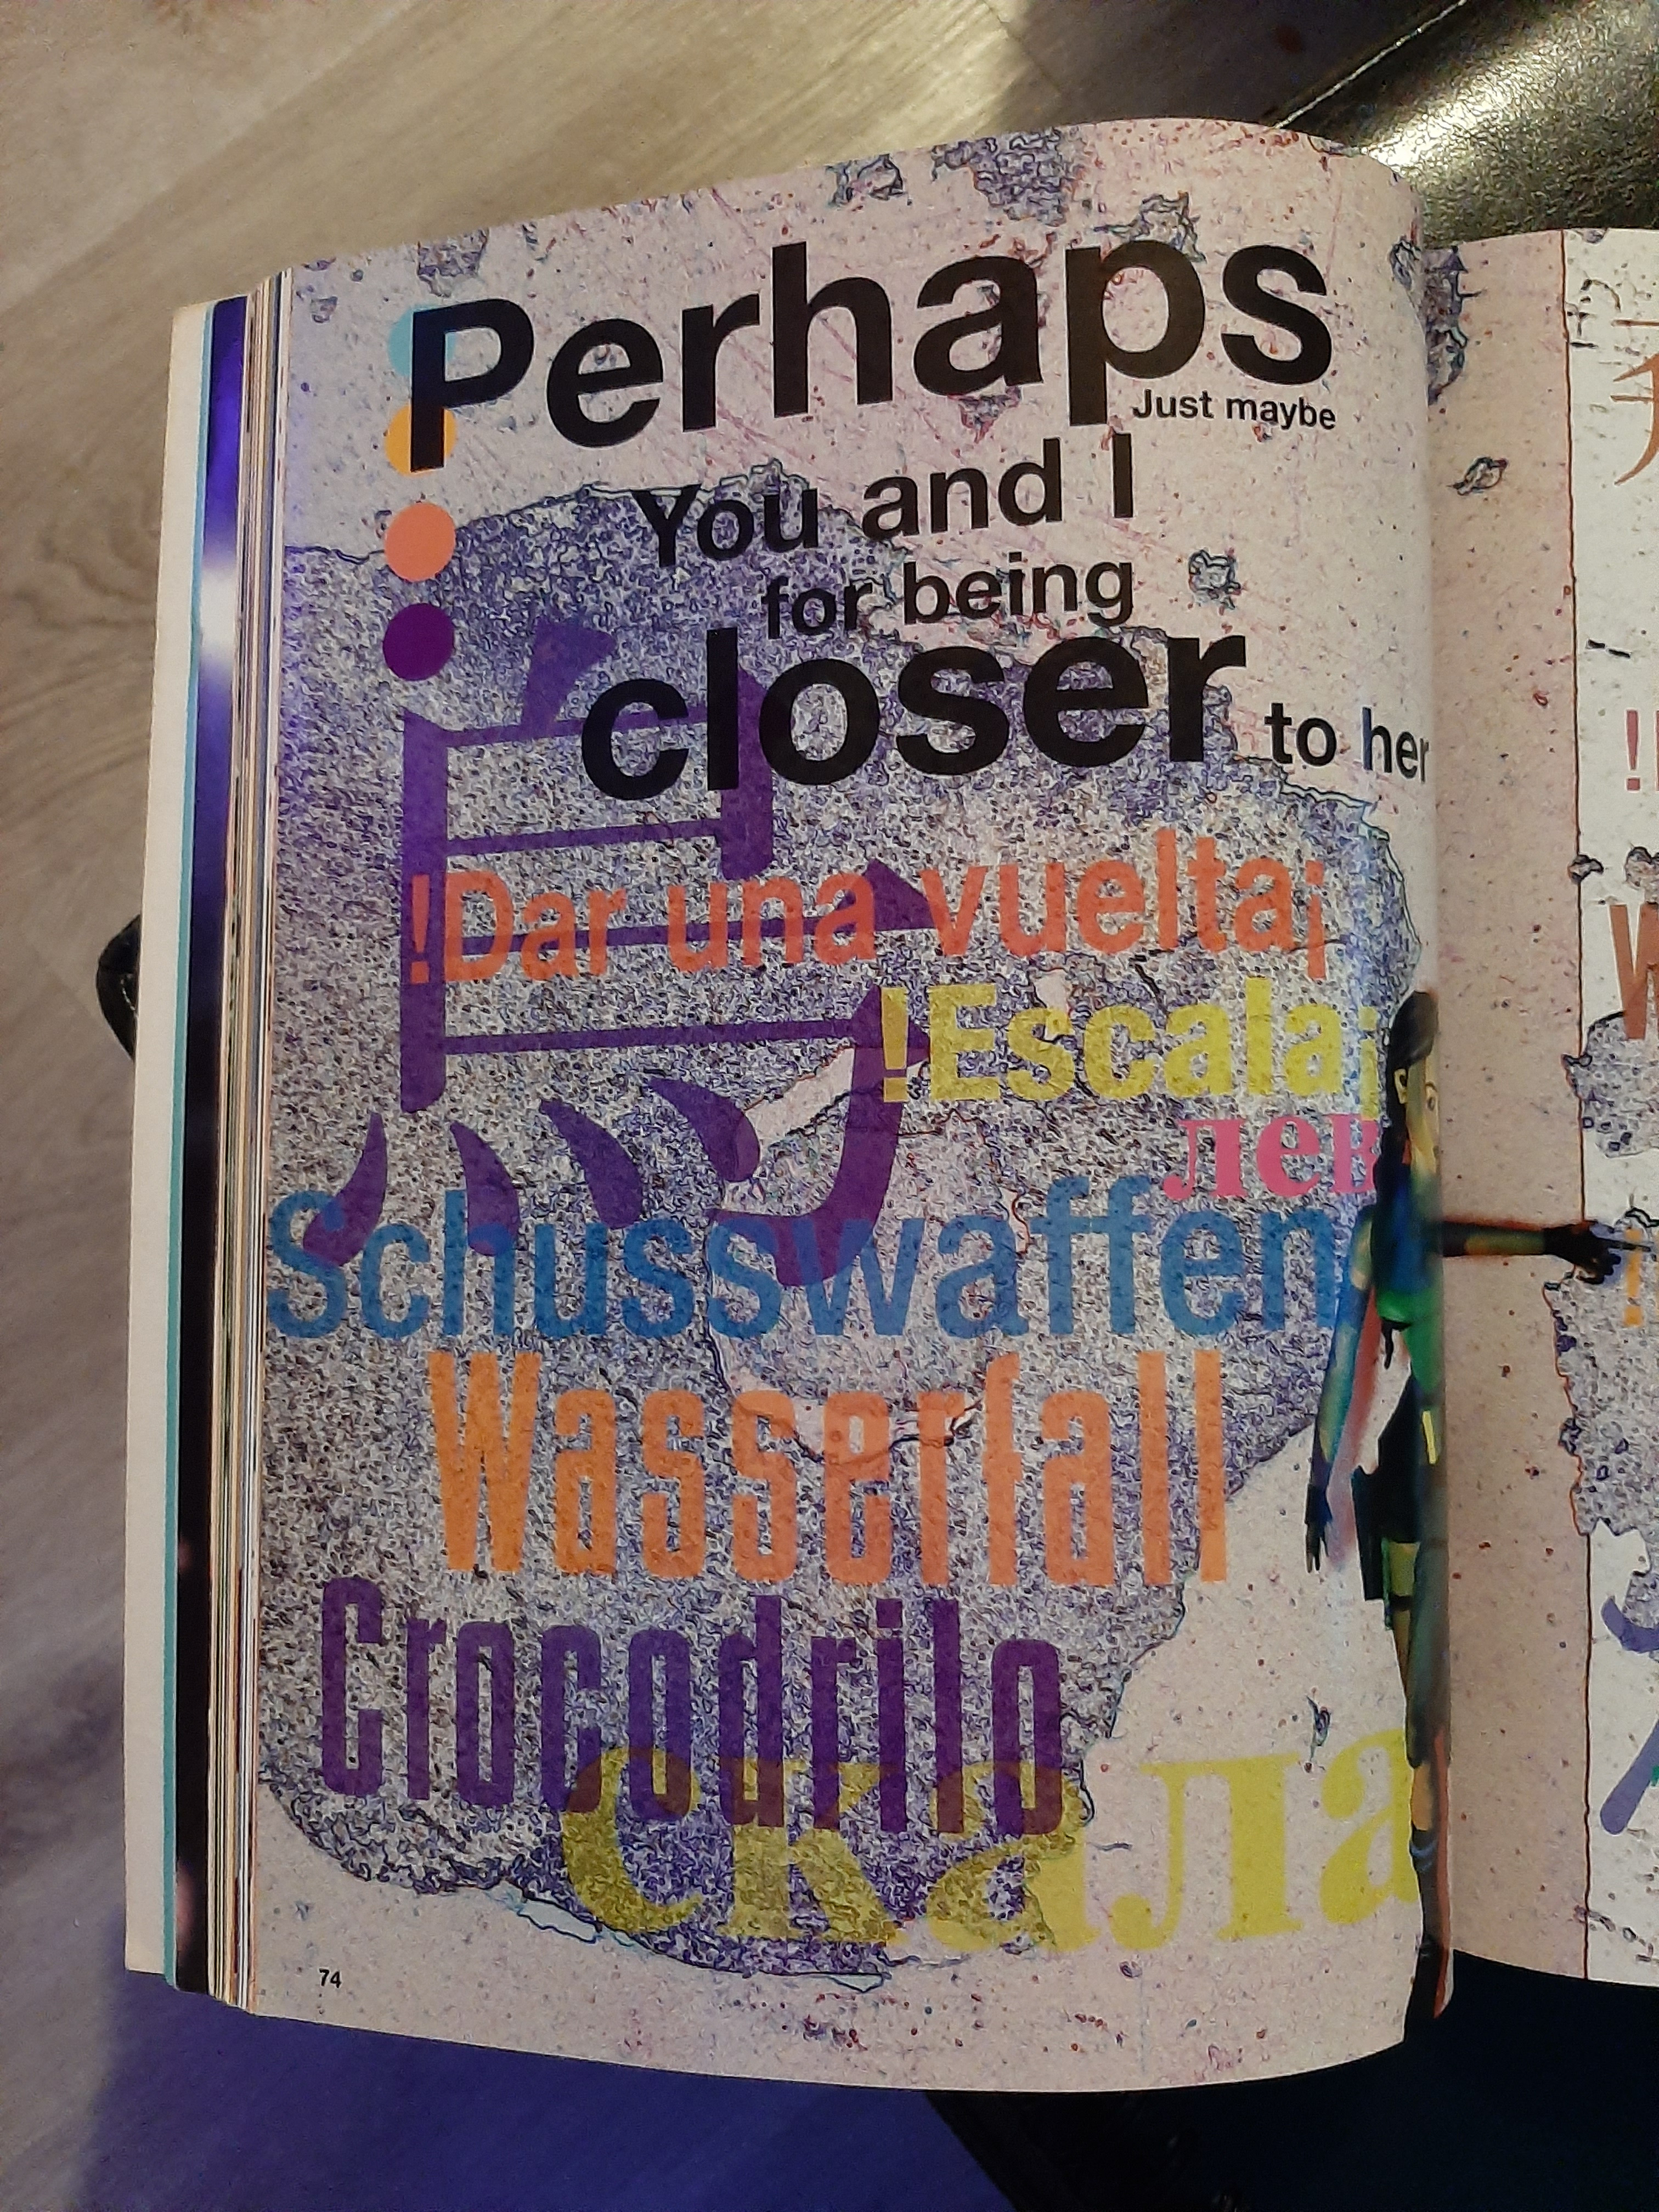 Perhaps
Just maybe
You and I
for being
closer to her
烏
!Dar una vuelta¡
!Escala¡
лев
Schusswaffen
Wasserfall
Crocodrilo
скала
74